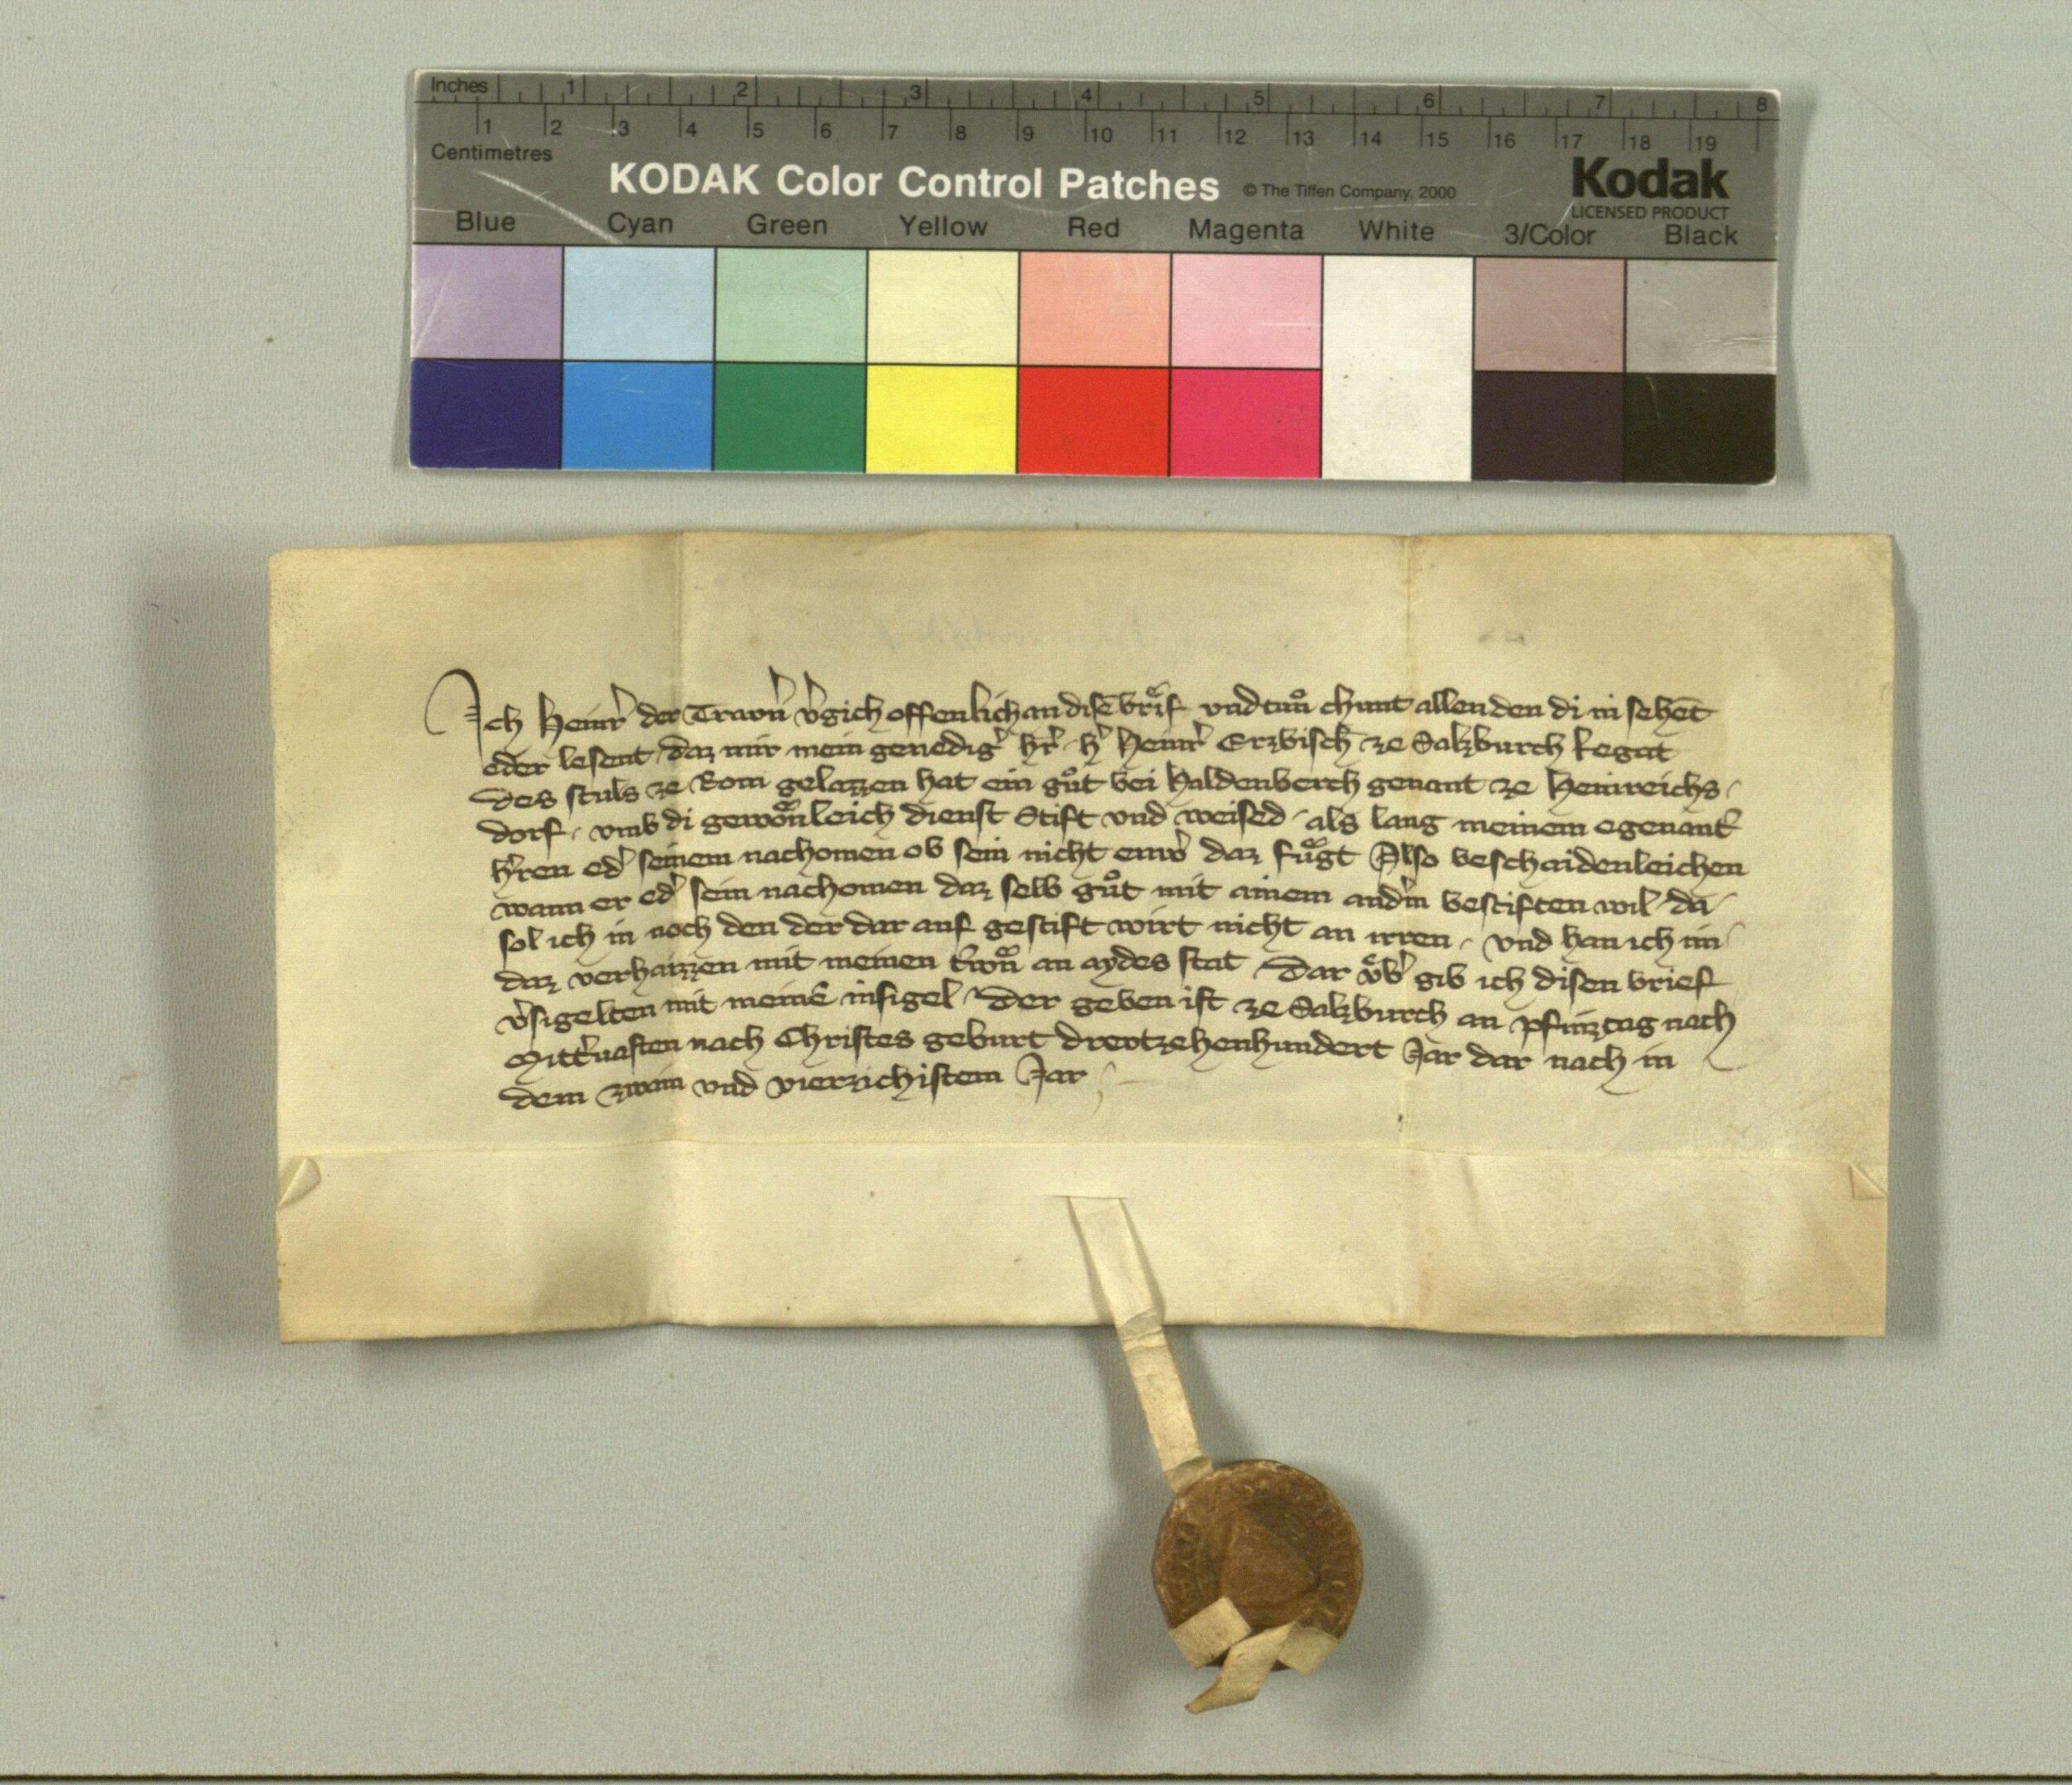 Inches 1 2 3 4 5 6 7 8
1 2 3 4 5 6 7 8 9 10 11 12 13 14 15 16 17 18 19
Centimetres
KODAK Color Control Patches © The Tiffen Company, 2000 Kodak
LICENSED PRODUCT
Blue Cyan Green Yellow Red Magenta White 3/Color Black
Ich Heinr̾ der Trawn̾ v̾gich offenlich an disē brif vnd tuͦn chunt allen den di in sehēt
oder lesent daz mir mein genedig̾ hr̾ h̾ Heinr̾ Erzbisch ze Salzburch Legat
des stuls ze Rom gelazzen hat ein guͦt bei Haldenberch genant ze Heinreichs
dorf vmb di gewoͤnleich dienst Stift vnd weised als lang meinem egenant̾
h̾ren od̾ seinem nachomen ob sein nicht enw̾ daz fuͤgt Also beschaidenleichen
wann er od̾ sein nachomen daz selb guͦt mit ainem and̾m bestiften wil da
sol ich in noch den der dar auf gestift wirt nicht an irren vnd han ich im
daz verhaizzen mit meinen tr̾wn an aydes stat Dar vͤb̾ gib ich disen brief
v̾sigelten mit meinē insigel Der geben ist ze Salzburch an pfinztag nach
Mitt̾uasten nach Christes geburt drevtzehenhundert Jar dar nach in
dem zwain vnd vierzichistem Jar